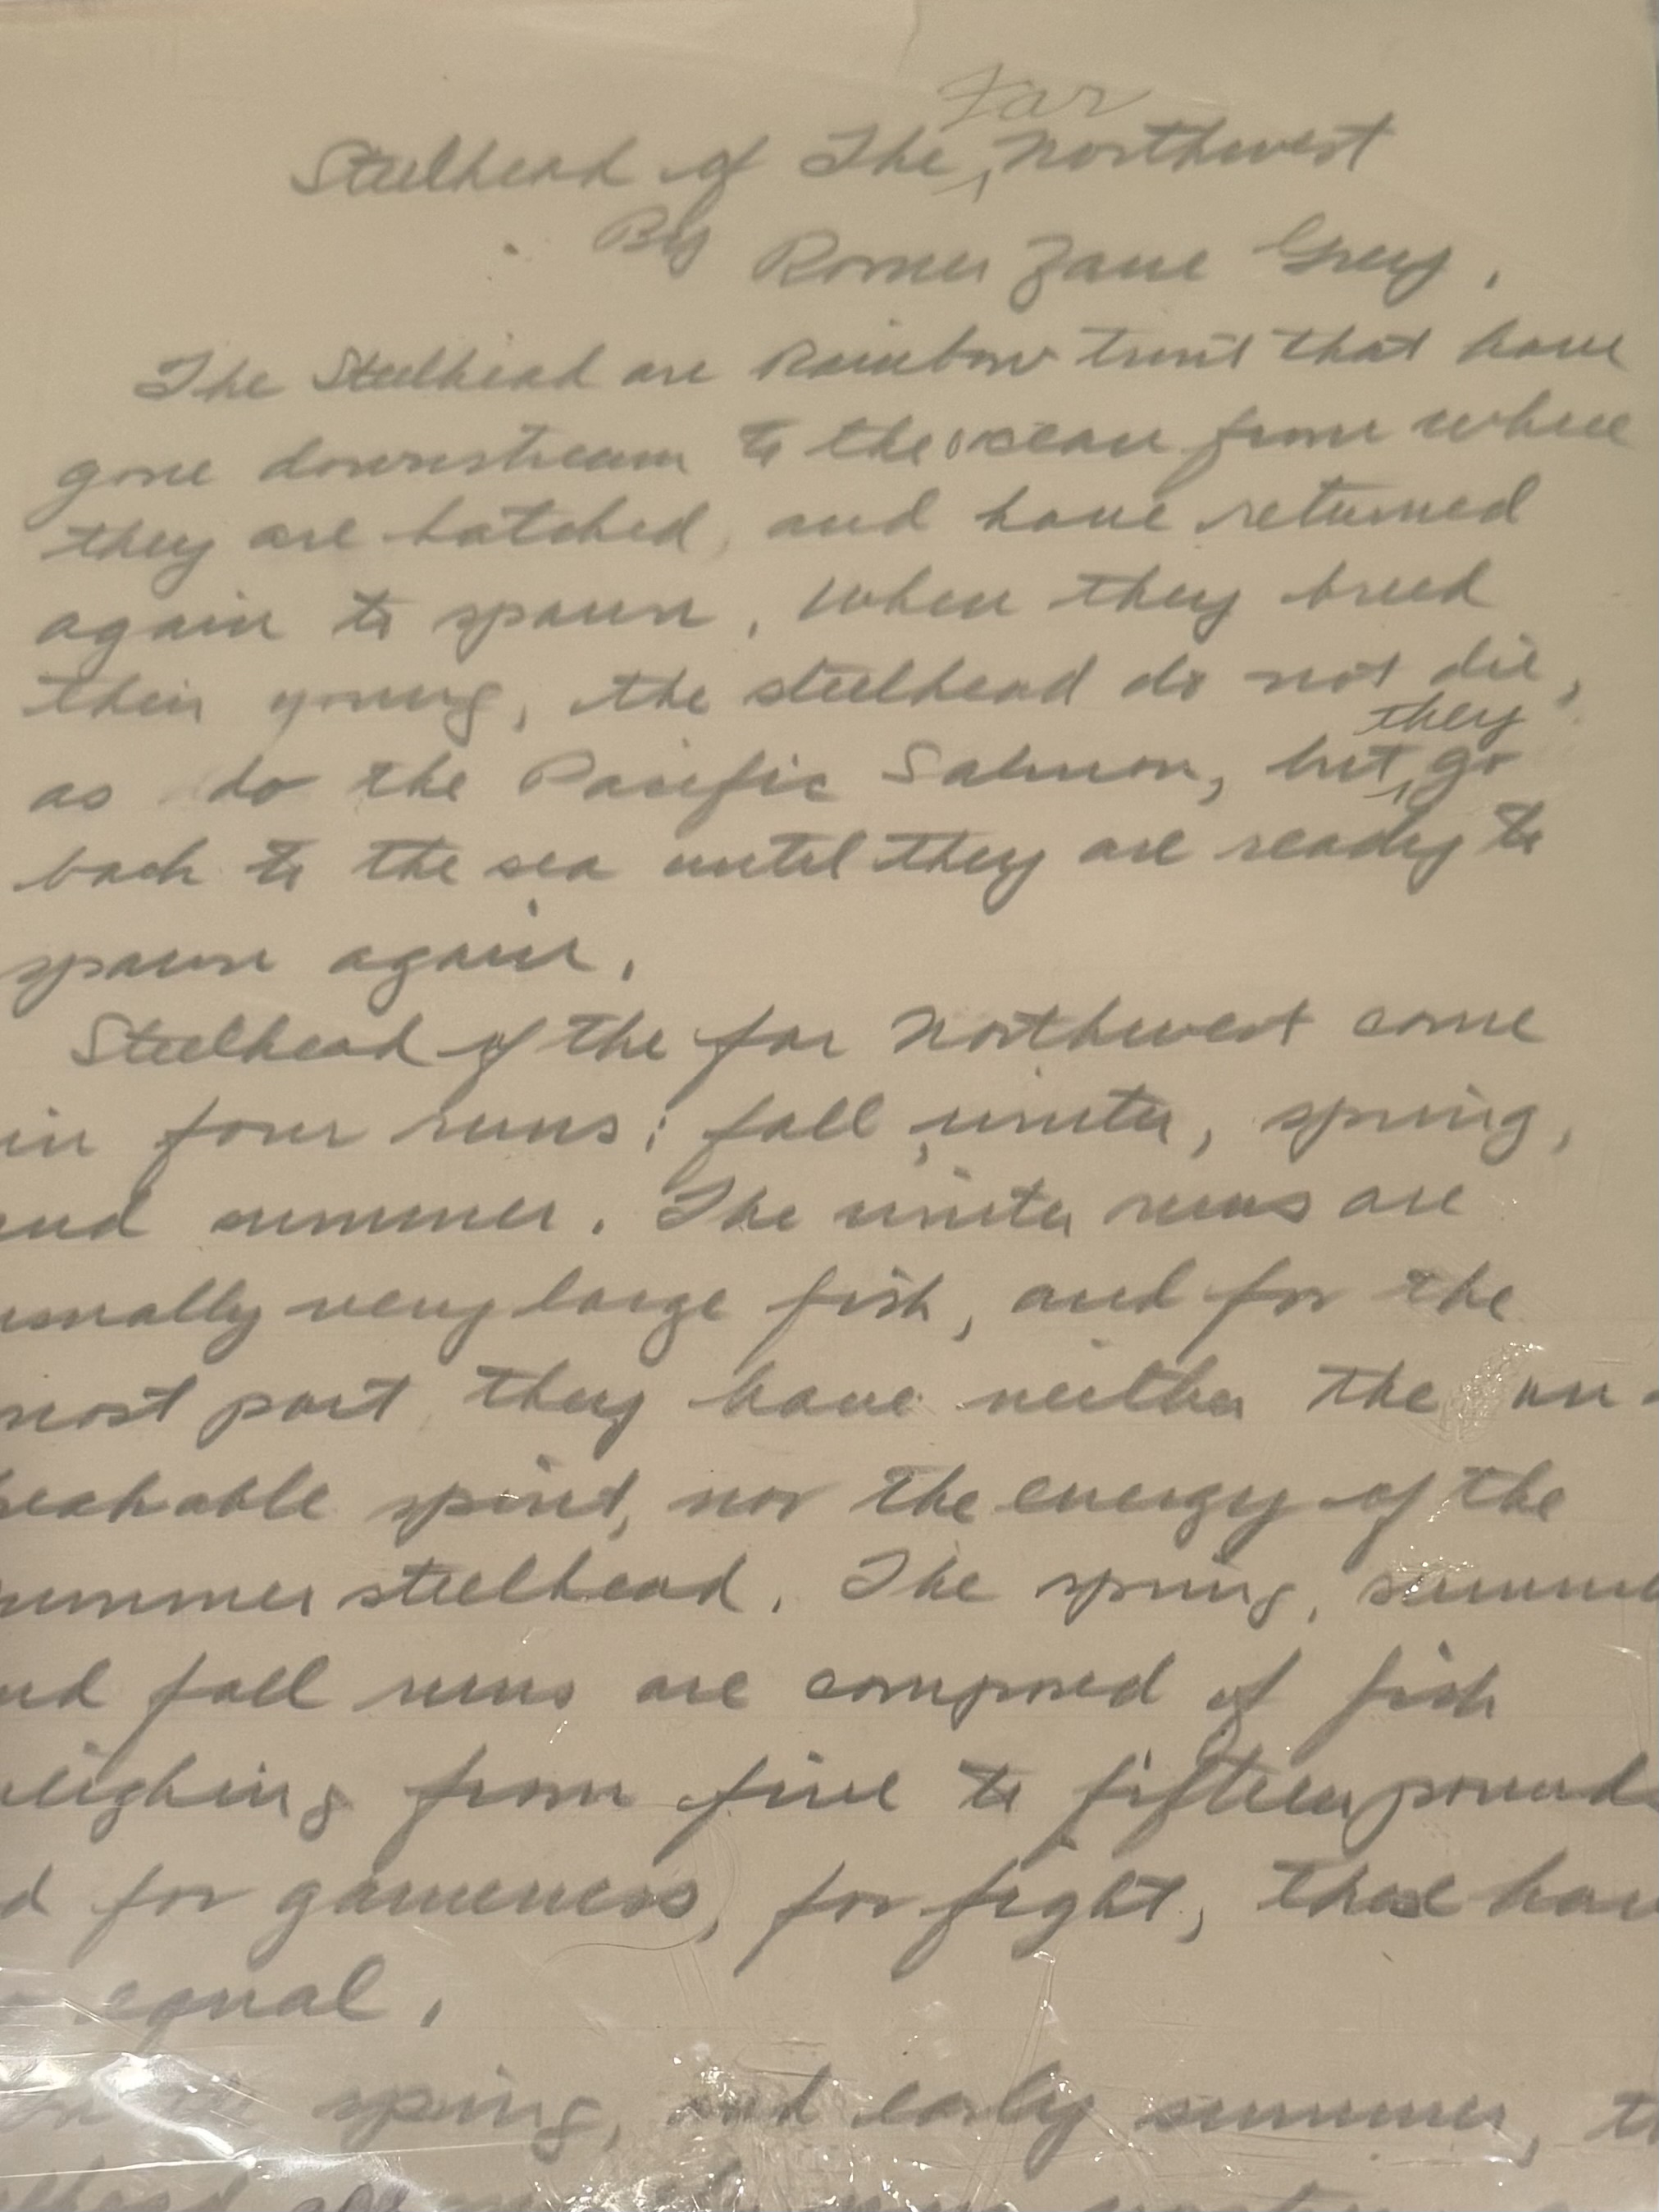 Far
Steelhead of The ‸ Northwest
By Romer Zane Grey.
The Steelhead are Rainbow trout that have
gone downstream to the ocean from where
they are hatched, and have returned
again to spawn. When they breed
their young, the steelhead do not die,
they
as do the Pacific Salmon, but ‸ go
back to the sea until they are ready to
spawn again.
Steelhead of the far Northwest come
in four runs; fall, winter, spring,
and summer. The winter runs are
usually very large fish, and for the
most part they have neither the un-
breakable spirit, nor the energy of the
summer steelhead. The spring, summe
nd fall runs are composed of fish
weighing from five to fifteen pounds
d for gameness, for fight, these have
equal.
spring, and early summer,